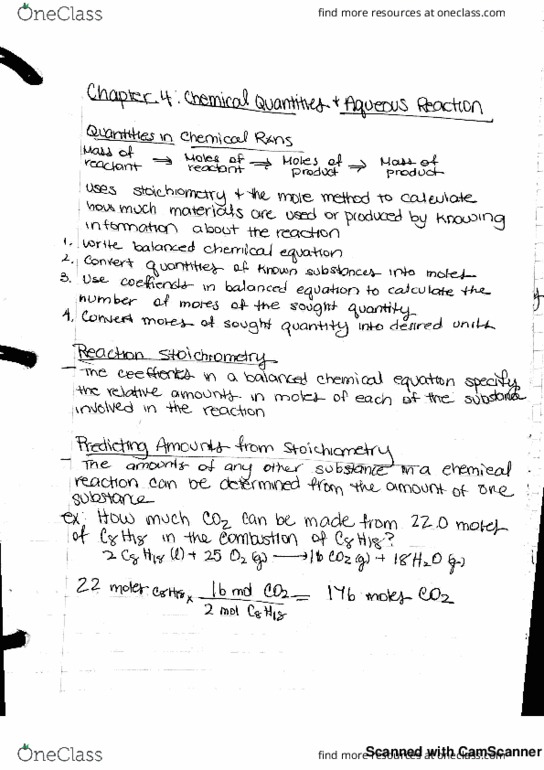 OneClass
find more resources at oneclass.com
Chapter 4: Chemical Quantities + Aqueous Reaction
Quantities in Chemical Rxns
Mass of reactant → Moles of reactant → Moles of product → Mass of product
uses stoichiometry + the mole method to calculate
how much materials are used or produced by knowing
information about the reaction
1. Write balanced chemical equation
2. Convert quantities of known substances into moles
3. Use coefficients in balanced equation to calculate the
number of moles of the sought quantity
4. Convert moles of sought quantity into desired units
Reaction Stoichiometry
- The coefficients in a balanced chemical equation specify
the relative amounts in moles of each of the substance
involved in the reaction
Predicting Amounts from Stoichiometry
- The amounts of any other substance in a chemical
reaction can be determined from the amount of one
substance
ex: How much CO2 can be made from 22.0 moles
of C8H18 in the combustion of C8H18?
2 C8H18 (l) + 25 O2 (g) → 16 CO2 (g) + 18 H2O (g)
22 moles C8H18 x 16 mol CO2 / 2 mol C8H18 = 176 moles CO2
Scanned with CamScanner
OneClass
find more resources at oneclass.com